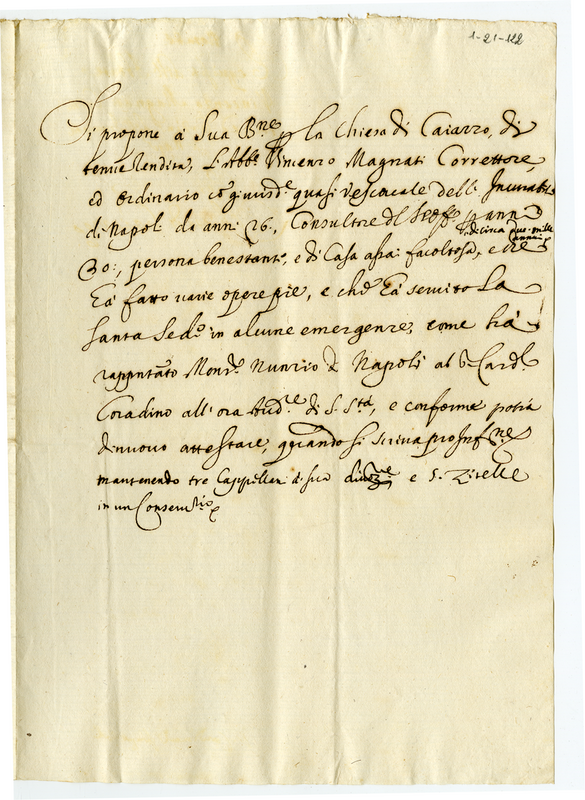 1-21-122
Si propone à Sua Bne p la Chiesa di Caiazzo, di
tenue Rendita, l'Abbe Vincenzo Magnati Correttore,
ed Ordinario cõ giurisde quasi Vescovale dell' Incurabi
di Napoli da anni 26, Consultore del S. Offo
di circa due mille
annui
30:, persona benestante, e di Casa assai facoltosa, e che
Ha fatto varie opere pie, e che Ha servito La
Santa Sede in alcune emergenze, come hà
rappntato Monsr Nunzio di Napoli al Sr Card
Coradino all'ora Audre di S. Stà, e conforme potrà
di nuovo attestare, quando si scriva pro Infne
mantenendo tre Cappellani di sua e 5. Zitelle
in un Conservrio